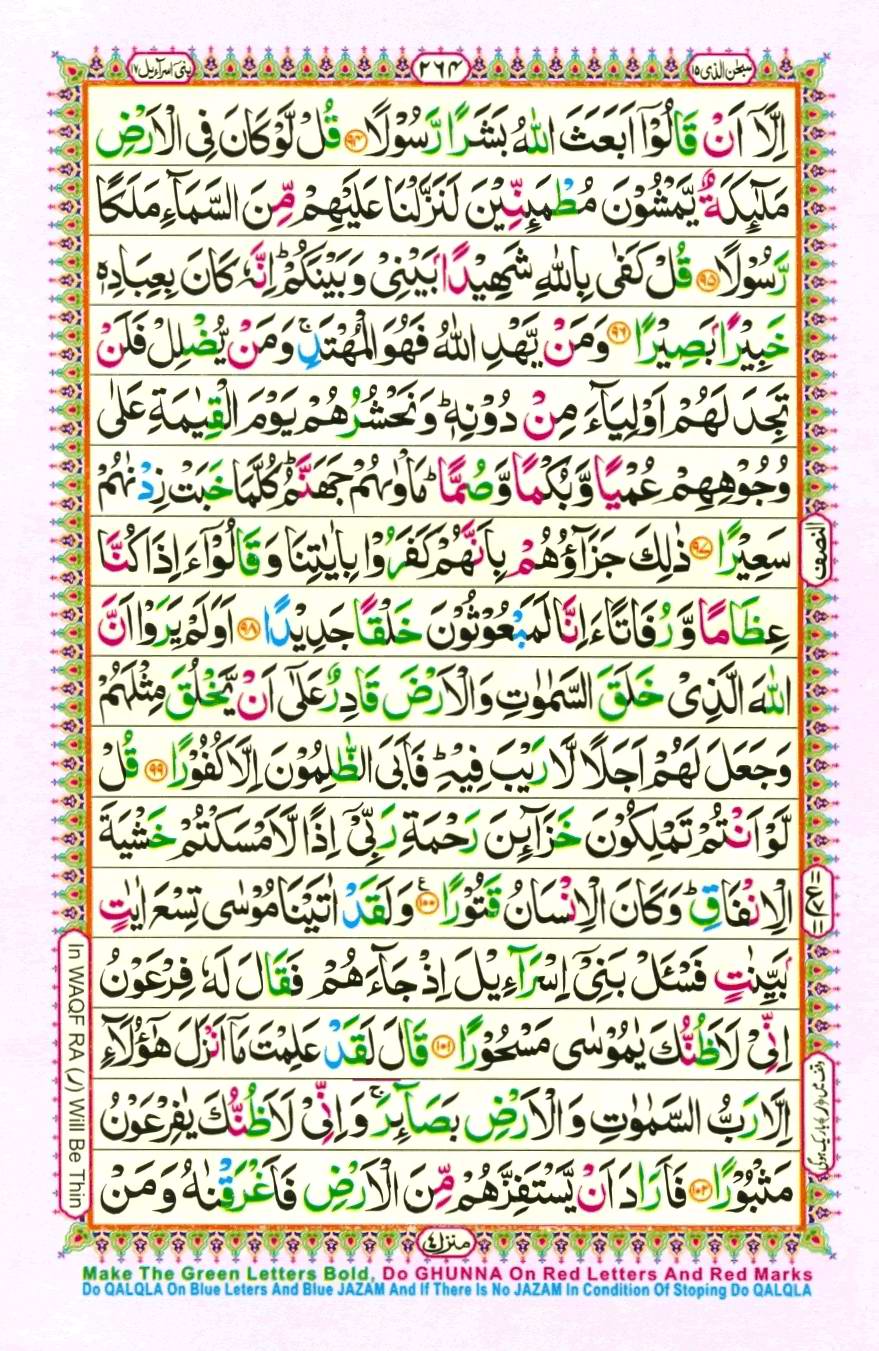 سبحٰن الذی ۱۵
۲۶۴
بنیٓ اسرآءیل ۱۷
اِلَّاۤ اَنْ قَالُوْۤا اَبَعَثَ اللّٰهُ بَشَرًا رَّسُوْلًا ۹۴ قُلْ لَّوْ كَانَ فِی الْاَرْضِ
مَلٰٓىِٕكَةٌ یَّمْشُوْنَ مُطْمَىِٕنِّیْنَ لَنَزَّلْنَا عَلَیْهِمْ مِّنَ السَّمَآءِ مَلَكًا
رَّسُوْلًا ۹۵ قُلْ كَفٰی بِاللّٰهِ شَهِیْدًۢا بَیْنِیْ وَ بَیْنَكُمْ ؕ اِنَّهٗ كَانَ بِعِبَادِهٖ
خَبِیْرًۢا بَصِیْرًا ۹۶ وَ مَنْ یَّهْدِ اللّٰهُ فَهُوَ الْمُهْتَدِ ۚ وَ مَنْ یُّضْلِلْ فَلَنْ
تَجِدَ لَهُمْ اَوْلِیَآءَ مِنْ دُوْنِهٖ ؕ وَ نَحْشُرُهُمْ یَوْمَ الْقِیٰمَةِ عَلٰی
وُجُوْهِهِمْ عُمْیًا وَّ بُكْمًا وَّ صُمًّا ؕ مَاْوٰىهُمْ جَهَنَّمُ ؕ كُلَّمَا خَبَتْ زِدْنٰهُمْ
سَعِیْرًا ۹۷ ذٰلِكَ جَزَآؤُهُمْ بِاَنَّهُمْ كَفَرُوْا بِاٰیٰتِنَا وَ قَالُوْۤا ءَاِذَا كُنَّا
النصف
عِظَامًا وَّ رُفَاتًا ءَاِنَّا لَمَبْعُوْثُوْنَ خَلْقًا جَدِیْدًا ۹۸ اَوَ لَمْ یَرَوْا اَنَّ
اللّٰهَ الَّذِیْ خَلَقَ السَّمٰوٰتِ وَ الْاَرْضَ قَادِرٌ عَلٰۤی اَنْ یَّخْلُقَ مِثْلَهُمْ
وَ جَعَلَ لَهُمْ اَجَلًا لَّا رَیْبَ فِیْهِ ؕ فَاَبَی الظّٰلِمُوْنَ اِلَّا كُفُوْرًا ۹۹ قُلْ
لَّوْ اَنْتُمْ تَمْلِكُوْنَ خَزَآىِٕنَ رَحْمَةِ رَبِّیْۤ اِذًا لَّاَمْسَكْتُمْ خَشْیَةَ
الْاِنْفَاقِ ؕ وَ كَانَ الْاِنْسَانُ قَتُوْرًا ۱۰۰ ع وَ لَقَدْ اٰتَیْنَا مُوْسٰی تِسْعَ اٰیٰتٍۭ
بَیِّنٰتٍ فَسْـَٔلْ بَنِیْۤ اِسْرَآءِیْلَ اِذْ جَآءَهُمْ فَقَالَ لَهٗ فِرْعَوْنُ
اِنِّیْ لَاَظُنُّكَ یٰمُوْسٰی مَسْحُوْرًا ۱۰۱ قَالَ لَقَدْ عَلِمْتَ مَاۤ اَنْزَلَ هٰۤؤُلَآءِ
اِلَّا رَبُّ السَّمٰوٰتِ وَ الْاَرْضِ بَصَآىِٕرَ ۚ وَ اِنِّیْ لَاَظُنُّكَ یٰفِرْعَوْنُ
مَثْبُوْرًا ۱۰۲ فَاَرَادَ اَنْ یَّسْتَفِزَّهُمْ مِّنَ الْاَرْضِ فَاَغْرَقْنٰهُ وَ مَنْ
In WAQF RA (ر) Will Be Thin
وقف میں (ر) باریک ہوگی
منزل ۴
Make The Green Letters Bold, Do GHUNNA On Red Letters And Red Marks
Do QALQLA On Blue Leters And Blue JAZAM And If There Is No JAZAM In Condition Of Stoping Do QALQLA